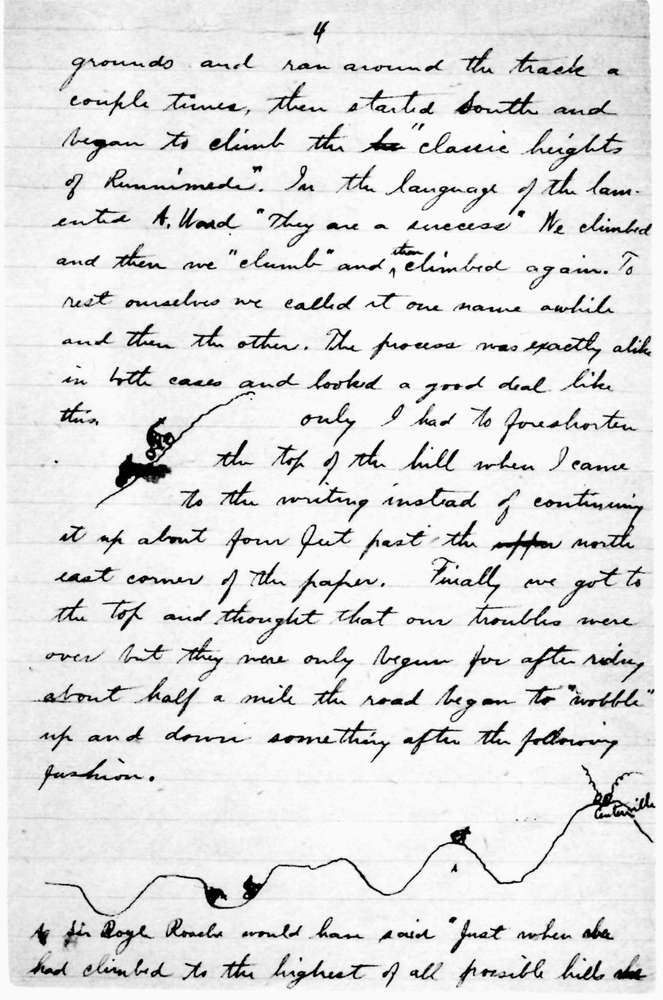 4
grounds and ran around the track a
couple times, then started South and
began to climb the "classic heights
of Runnimede". In the language of the lam-
ented A. Ward "They are a success" We climbed
and then we "clumb" and then climbed again. To
rest ourselves we called it one name awhile
and then the other. The process was exactly alike
in both cases and looked a good deal like
this. only I had to foreshorten
the top of the hill when I came
to the writing instead of continuing
it up about four feet past the north
east corner of the paper. Finally we got to
the top and thought that our troubles were
over but they were only begun for after riding
about half a mile the road began to "wobble"
up and down something after the following
fashion.
Centerville
Sir Boyle Roache would have said "Just when
had climbed to the highest of all possible hills